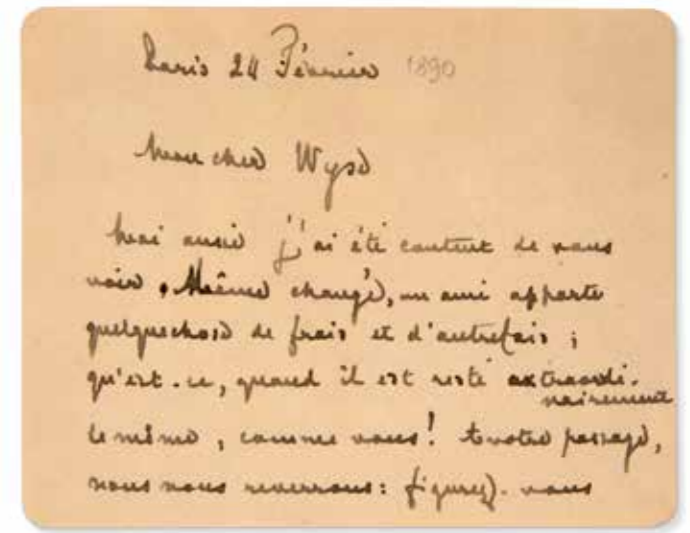 Paris 24 Février 1890
Mon cher Wyse
Moi aussi j'ai été content de vous
voir. Même changé, un ami apporte
quelquechose de frais et d'autrefois ;
qu'est-ce, quand il est resté extraordi-
nairement
le même, comme vous! A votre passage,
nous nous reverrons: figurez-vous